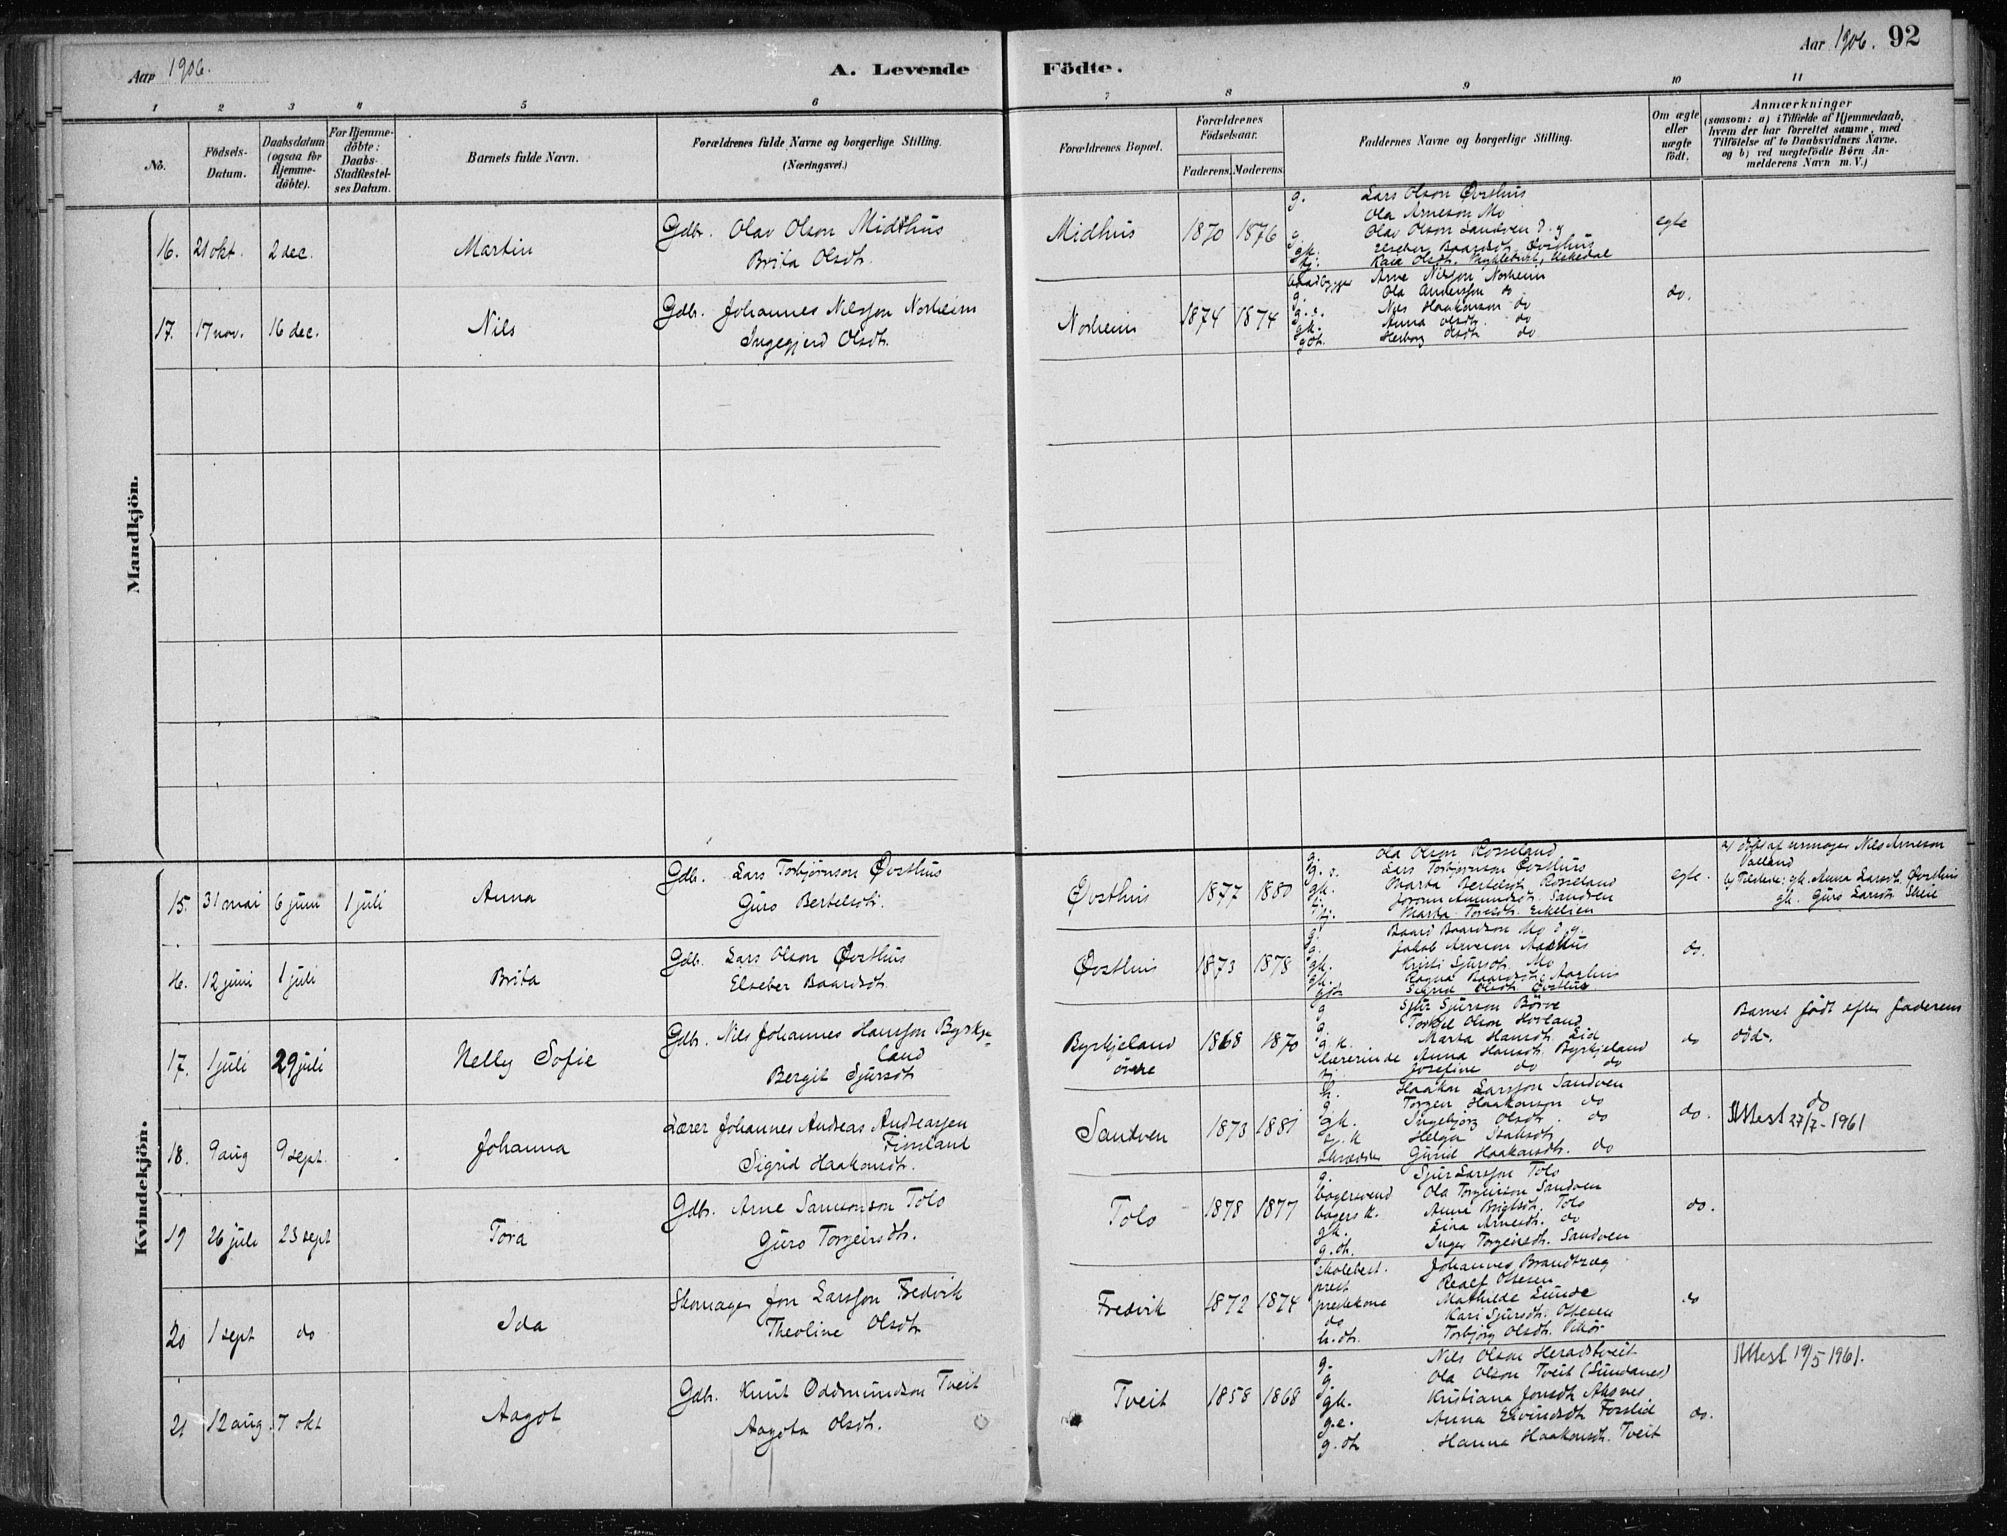 Aar 1906.
A. Levende
Födte.
Aar 1906. 92
1 2 3 4 5 6 7 8 9 10 11
No.
Födsels-
Datum.
Daabsdatum
(ogsaa for
Hjemme-
döbte).
For Hjemme-
döbte:
Daabs-
Stadfæstel-
ses Datum.
Barnets fulde Navn.
Forældrenes fulde Navne og borgerlige Stilling.
(Næringsvei.)
Forældrenes Bopæl.
Forældrenes
Födselsaar.
Faderens. Moderens.
Faddernes Navne og borgerlige Stilling.
Om ægte
eller
uægte
födt.
Anmærkninger
(saasom: a) i Tilfælde af Hjemmedaab,
hvem der har forrettet samme, med
Tilföielse af to Daabsvidners Navne,
og b) ved uægtefödte Börn An-
melderens Navn m. V.)
Mandkjön.
16. 21 okt. 2 dec. Martin
Gdb. Olav Olson Midthus
Brita Olsdtr.
Midhus 1870 1876
g. Lars Olson Øvsthus
Ola Arneson Mo
Olav Olson Sandven d. y
gk. Elseber Baardsdt. Øvsthus
tj. Kari Olsdt. Uskedal
egte
17. 17 nov. 16 dec. Nils
Gdb. Johannes Nilsson Norheim
Ingegjerd Olsdtr.
Norheim 1874 1874
baadbygger Arne Nilsson Norheim
g. Ola Andersson do
g. s. Nils Haakonson do
gk. Anna Olsdt. do
gdt. Herborg Olsdt do
do.
Kvindekjön.
15. 31 mai 6 juni 1 juli Anna
Gdb. Lars Torbjørnson Øvsthus
Guro Bertelsdt.
Øvsthus 1877 1880
g. Ola Olson Rosseland
g. s. Lars Torbjørnson Øvsthus
gk. Marta Bertelsdt. Rosseland
tj. Jorunn Amundsdt. Sandven
tj. Marta Toresdt.
egte.
a) døbt af urmager Nils Arneson
Valland
b) Tilstede: gk. Anna Larsdt. Øvsthus
gk. Guro Larsdt. Skeie
16. 12 juni 1 juli Brita
Gdb. Lars Olson Øvsthus
Elseber Baardsdt.
Øvsthus 1873 1878
g. Baard Baardson Mo d. y.
g. Jakob Arneson Aarhus
gk. Kristi Sjursdt. Mo
gk. Ragna Baardsdt. Aarhus
gdt. Sigrid Olsdt. Øvsthus
do.
17. 1 juli 29 juli Nelly Sofie
Gdb. Nils Johannes Hansson Byrkje-
land
Bergit Sjursdt.
Byrkjeland
øvre
1868 1870
g Sjur Sjurson Børve
g. Torkel Olson Hovland
g. k. Marta Hansdt. Lid
lærerinde Anna Hansdt. Byrkjeland
tj. Josefine do do
do
Barnet født efter faderens
død.
18. 9 aug 9 sept. Johanna
Lærer Johannes Andreas Andreassen
Finsland
Sigrid Haakonsdt.
Sandven 1873 1881
h. Haakon Larsson Sandven
g. Torgeir Haakonson do
gk. Ingebjørg Olsdt. do
g. k Helga Isaksdt.
Gurid Haakonsdt. do
do.
do
Attest 27/7-1961
19 26 juli 23 sept Tora
Gdb. Arne Samsonson Tolo
Guro Torgeirsdt.
Tolo 1878 1877
g. Sjur Larsson Tolo
bagersvend Ola Torgeirson Sandven
bagers k. Anna Tolo
gk. Eina Arnesdt. do
g. dt. Inger Torgeirsdt. Sandven
do.
20 1 sept do Ida
Skomager Jon Larsson Fredvik
Theoline Olsdt.
Fredvik 1872 1874
skolebest. Johannes Brandtzæg
prest Realf Ottesen
prestekone Mathilde Lunde
do Kari Sjursdt. Ottesen
h. dt. Torbjørg Olsdt. Vikør
do
21 12 aug. 7 okt Aagot
Gdb. Knut Oddmundson Tveit
Aagota Olsdt.
Tveit 1858 1868
g. Nils Olson Heradstveit
g Ola Olson Tveit (Sundanes)
gk. Kristiana Jonsdt. Aksnes
g. e. Anna Eivindsdt. Fosslid
g. dt Hanna Haakonsdt. Tveit
do.
Attest 19/5 1961.